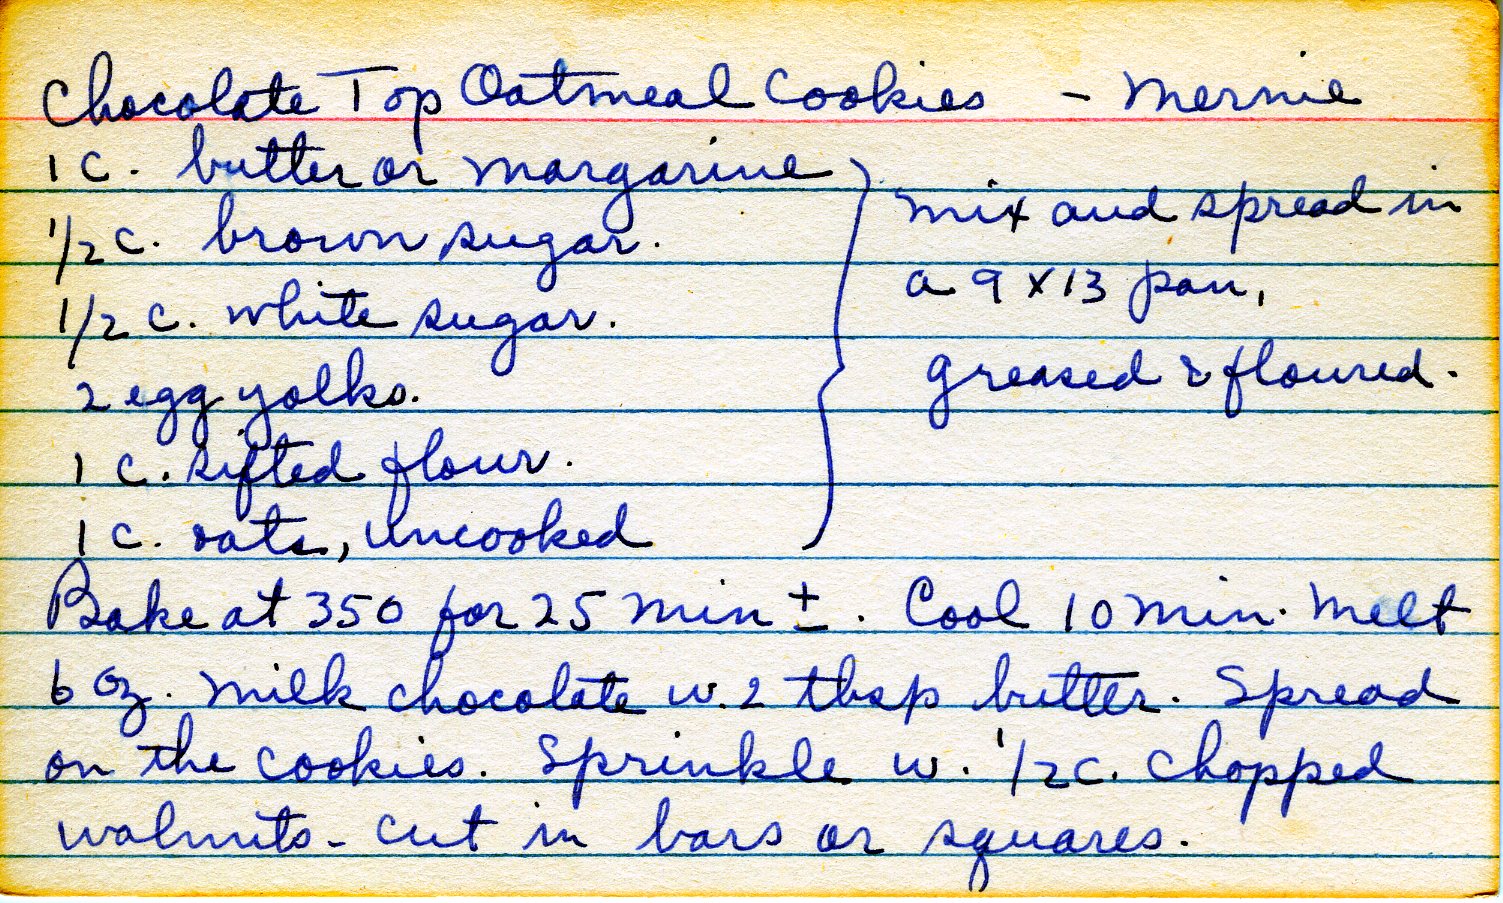 Chocolate Top Oatmeal Cookies - Mernie
1 c. butter or margarine
1/2 c. brown sugar.
1/2 c. white sugar.
2 egg yolks.
1 c. sifted flour.
1 c. oats, uncooked
mix and spread in
a 9 x 13 pan,
greased & floured.
Bake at 350 for 25 min ±. Cool 10 min. Melt
6 oz. milk chocolate w. 2 tbsp butter. Spread
on the cookies. Sprinkle w. 1/2 c. chopped
walnuts - cut in bars or squares.